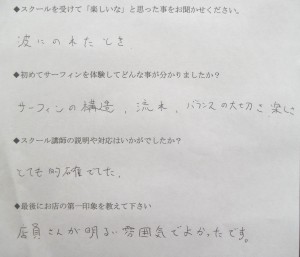 ◆スクールを受けて「楽しいな」と思った事をお聞かせください。
波にのれたとき
◆初めてサーフィンを体験してどんな事が分かりましたか?
サーフィンの構造、流れ、バランスの大切さ、楽しさ
◆スクール講師の説明や対応はいかがでしたか?
とても的確でした。
◆最後にお店の第一印象を教えて下さい
店員さんが明るい雰囲気でよかったです。